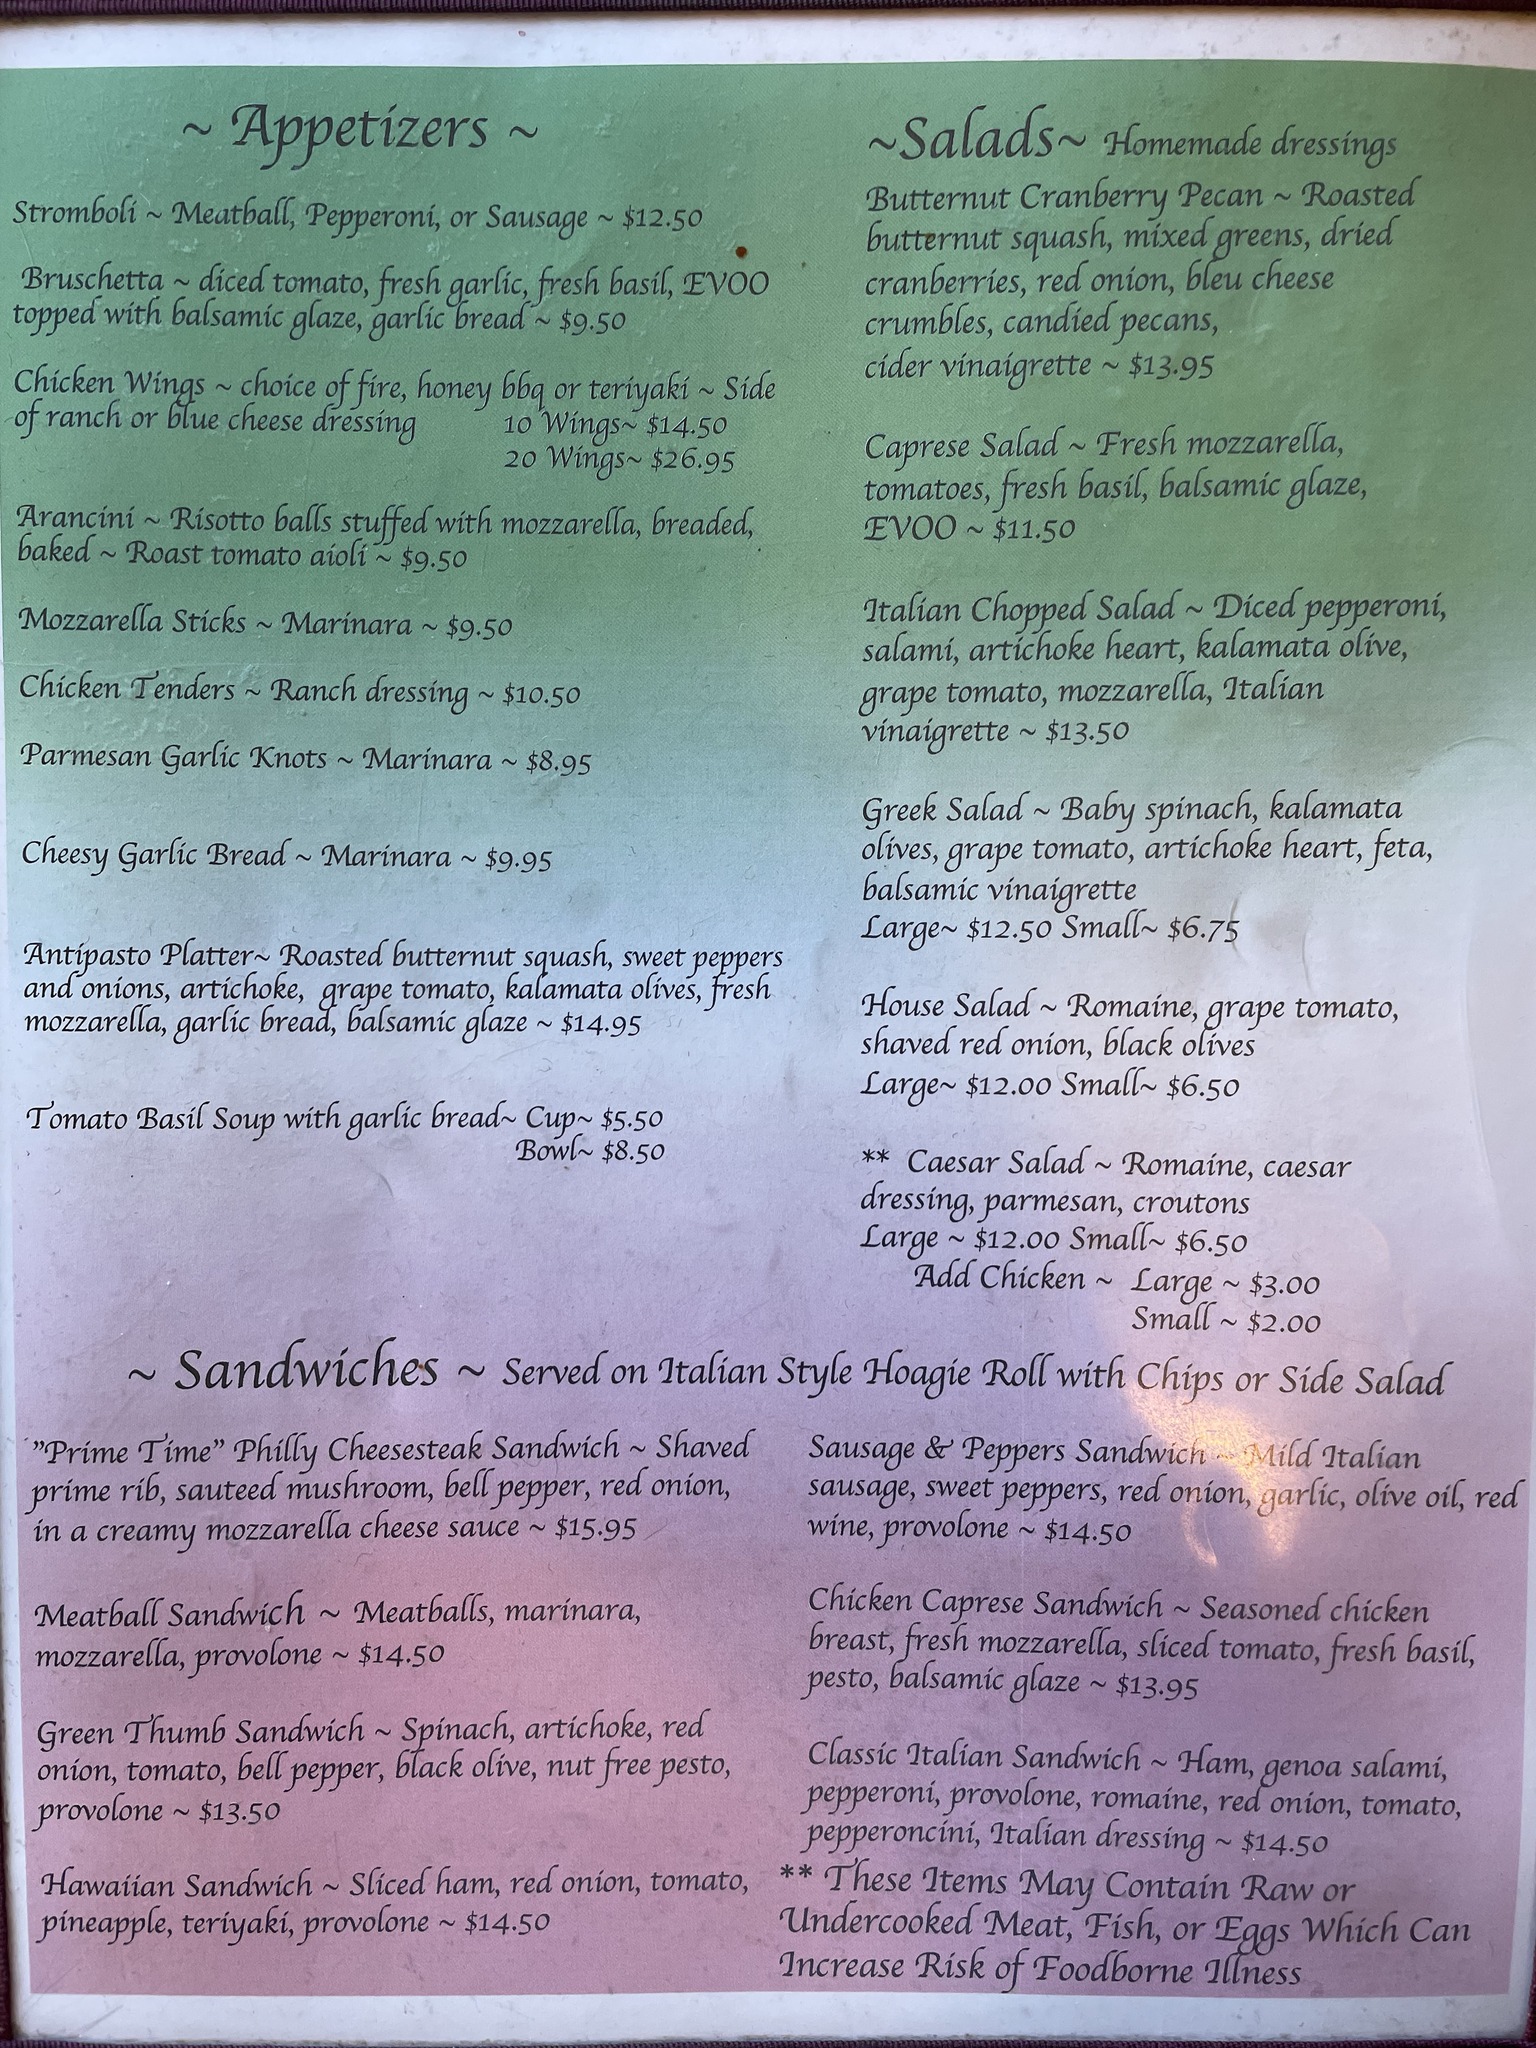 ~ Appetizers ~
Stromboli ~ Meatball, Pepperoni, or Sausage ~ $12.50
Bruschetta ~ diced tomato, fresh garlic, fresh basil, EVOO
topped with balsamic glaze, garlic bread ~ $9.50
Chicken Wings ~ choice of fire, honey bbq or teriyaki ~ Side
of ranch or blue cheese dressing 10 Wings~ $14.50
20 Wings~ $26.95
Arancini ~ Risotto balls stuffed with mozzarella, breaded,
baked ~ Roast tomato aioli ~ $9.50
Mozzarella Sticks ~ Marinara ~ $9.50
Chicken Tenders ~ Ranch dressing ~ $10.50
Parmesan Garlic Knots ~ Marinara ~ $8.95
Cheesy Garlic Bread ~ Marinara ~ $9.95
Antipasto Platter~ Roasted butternut squash, sweet peppers
and onions, artichoke, grape tomato, kalamata olives, fresh
mozzarella, garlic bread, balsamic glaze ~ $14.95
Tomato Basil Soup with garlic bread~ Cup~ $5.50
Bowl~ $8.50
~Salads~ Homemade dressings
Butternut Cranberry Pecan ~ Roasted
butternut squash, mixed greens, dried
cranberries, red onion, bleu cheese
crumbles, candied pecans,
cider vinaigrette ~ $13.95
Caprese Salad ~ Fresh mozzarella,
tomatoes, fresh basil, balsamic glaze,
EVOO ~ $11.50
Italian Chopped Salad ~ Diced pepperoni,
salami, artichoke heart, kalamata olive,
grape tomato, mozzarella, Italian
vinaigrette ~ $13.50
Greek Salad ~ Baby spinach, kalamata
olives, grape tomato, artichoke heart, feta,
balsamic vinaigrette
Large~ $12.50 Small~ $6.75
House Salad ~ Romaine, grape tomato,
shaved red onion, black olives
Large~ $12.00 Small~ $6.50
** Caesar Salad ~ Romaine, caesar
dressing, parmesan, croutons
Large ~ $12.00 Small~ $6.50
Add Chicken ~ Large ~ $3.00
Small ~ $2.00
~ Sandwiches ~ Served on Italian Style Hoagie Roll with Chips or Side Salad
"Prime Time" Philly Cheesesteak Sandwich ~ Shaved
prime rib, sauteed mushroom, bell pepper, red onion,
in a creamy mozzarella cheese sauce ~ $15.95
Meatball Sandwich ~ Meatballs, marinara,
mozzarella, provolone ~ $14.50
Green Thumb Sandwich ~ Spinach, artichoke, red
onion, tomato, bell pepper, black olive, nut free pesto,
provolone ~ $13.50
Hawaiian Sandwich ~ Sliced ham, red onion, tomato,
pineapple, teriyaki, provolone ~ $14.50
Sausage & Peppers Sandwich ~ Mild Italian
sausage, sweet peppers, red onion, garlic, olive oil, red
wine, provolone ~ $14.50
Chicken Caprese Sandwich ~ Seasoned chicken
breast, fresh mozzarella, sliced tomato, fresh basil,
pesto, balsamic glaze ~ $13.95
Classic Italian Sandwich ~ Ham, genoa salami,
pepperoni, provolone, romaine, red onion, tomato,
pepperoncini, Italian dressing ~ $14.50
** These Items May Contain Raw or
Undercooked Meat, Fish, or Eggs Which Can
Increase Risk of Foodborne Illness